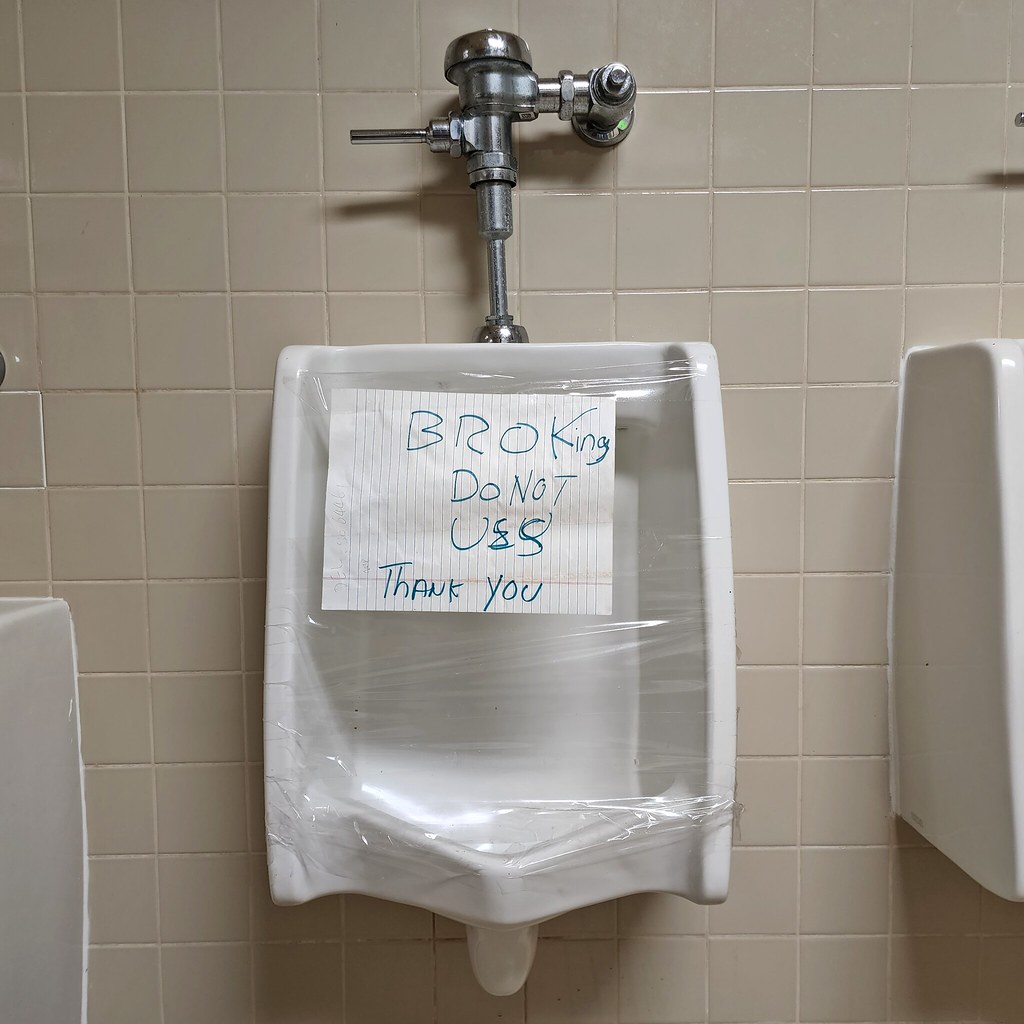 BROKing
DO NOT
USE
THANK YOU